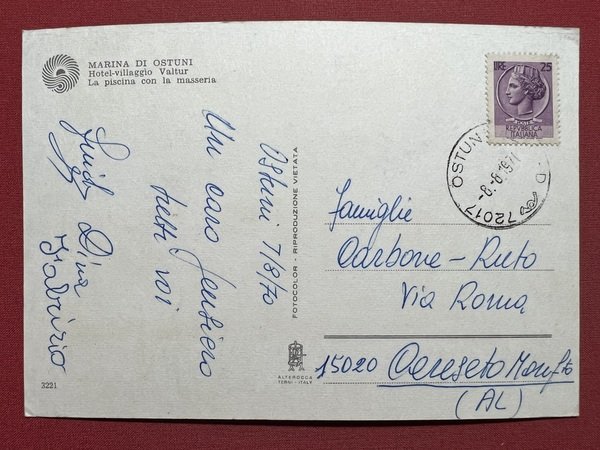 MARINA DI OSTUNI
Hotel-villaggio Valtur
La piscina con la masseria
Ostuni 7/8/70
Un caro pensiero
tutti voi
Dina
Fabrizio
3221
FOTOCOLOR - RIPRODUZIONE VIETATA
ALTEROCCA
TERNI - ITALY
LIRE 25
POSTE
REPVBBLICA
ITALIANA
72017 OSTUN
-8-8-197
famiglie
Carbone-Ruto
Via Roma
15020 Cereseto Monf/to
(AL)